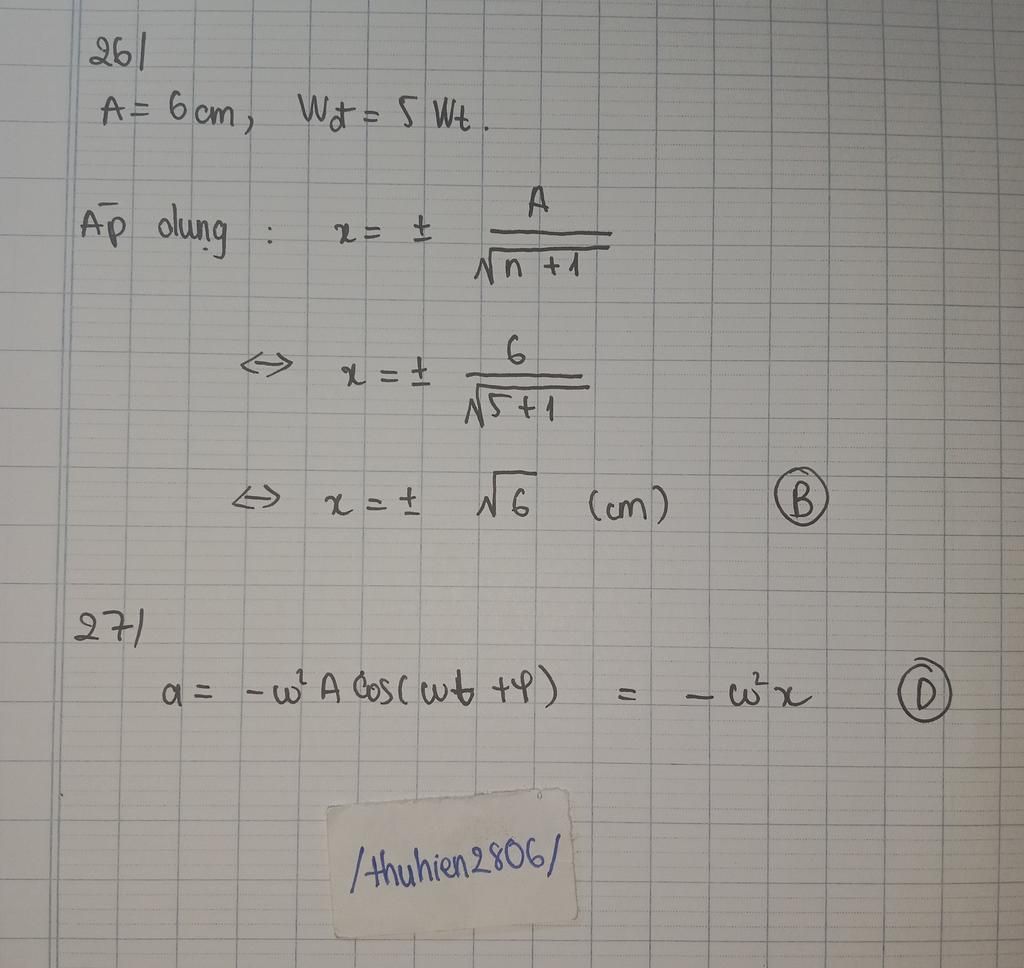 26/
A = 6 cm, Wđ = 5 Wt.
Áp dụng : x = ± A/√(n + 1)
⇔ x = ± 6/√(5 + 1)
⇔ x = ± √6 (cm) Ⓑ
27/
a = -ω² A cos(ωt + φ) = - ω²x Ⓓ
/thuhien2806/